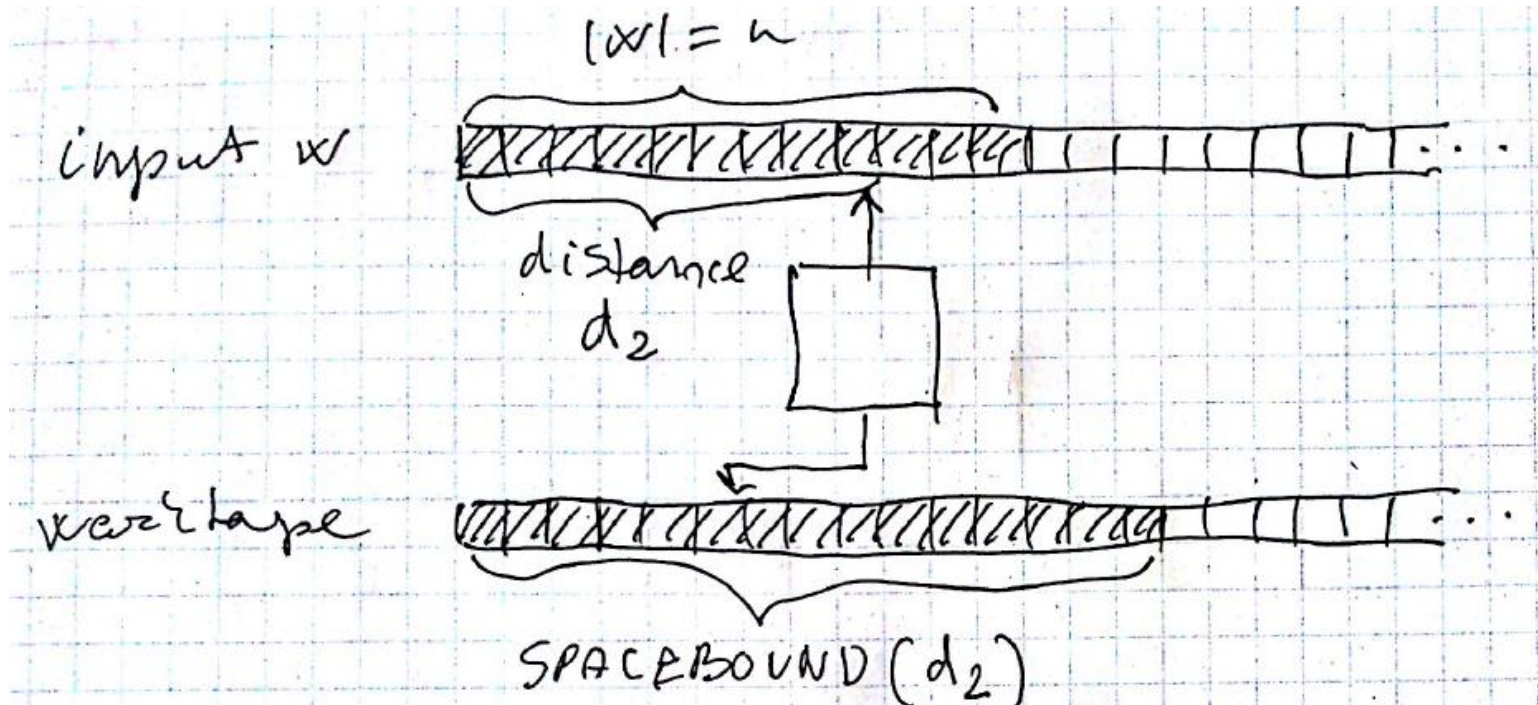 |w| = n
input w
. . .
distance
d₂
worktape
. . .
SPACEBOUND (d₂)